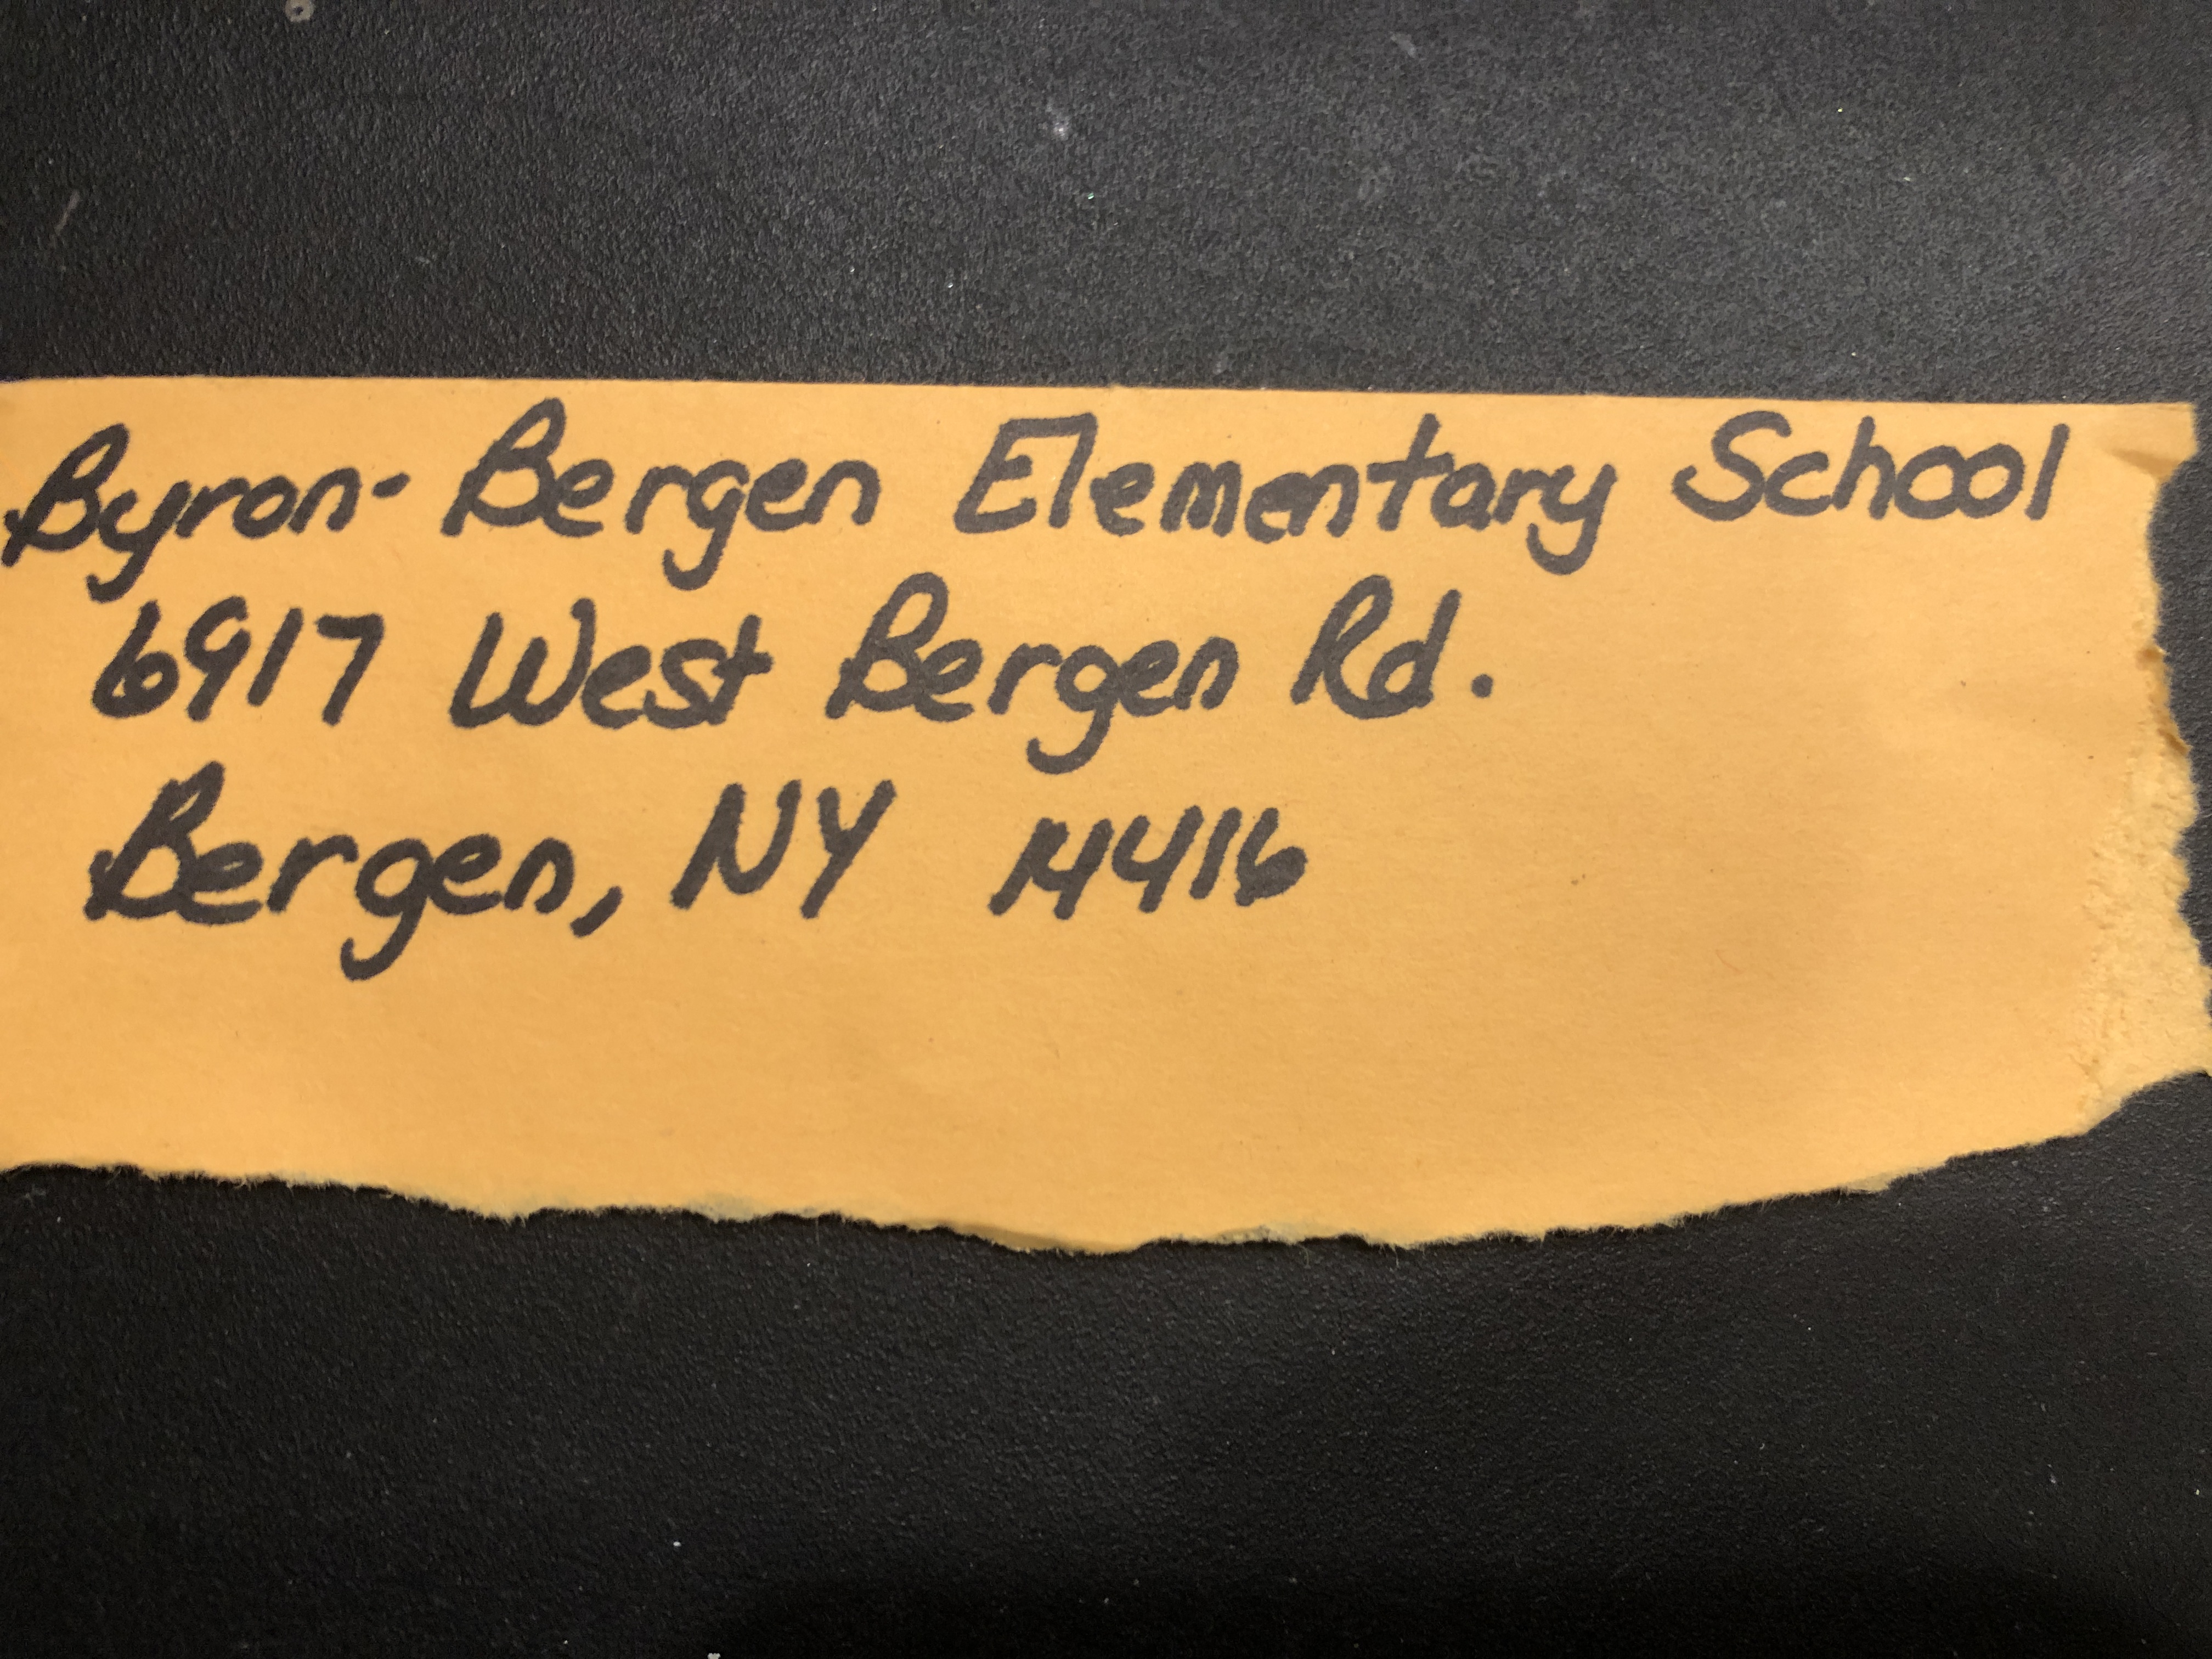 Byron-Bergen Elementary School
6917 West Bergen Rd.
Bergen, NY 14416